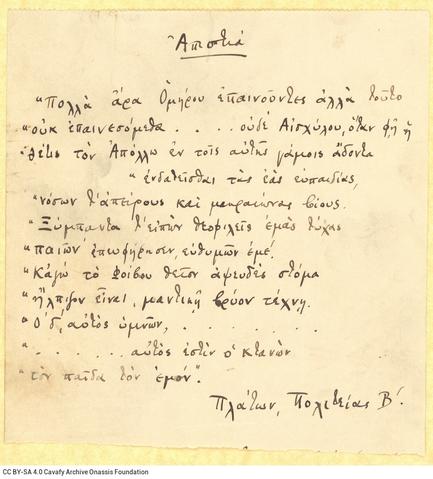 Απιστία
“Πολλὰ ἄρα Ὁμήρου ἐπαινοῦντες ἀλλὰ τοῦτο
“οὐκ ἐπαινεσόμεθα . . . . οὐδὲ Αἰσχύλου, ὅταν φῇ ἡ
“Θέτις τὸν Ἀπόλλω ἐν τοῖς αὑτῆς γάμοις ᾄδοντα
“ἐνδατεῖσθαι τὰς ἑὰς εὐπαιδίας,
“νόσων τ’ ἀπείρους καὶ μακραίωνας βίους.
“Ξύμπαντά τ’ εἰπὼν θεοφιλεῖς ἐμὰς τύχας
“παιῶν’ ἐπευφήμησεν, εὐθυμῶν ἐμέ.
“Κἀγὼ τὸ Φοίβου θεῖον ἀψευδὲς στόμα
“ἤλπιζον εἶναι, μαντικῇ βρύον τέχνῃ.
“Ὁ δ’, αὐτὸς ὑμνῶν, . . . . . .
“. . . . . . αὐτός ἐστιν ὁ κτανὼν
“τὸν παῖδα τὸν ἐμόν”.
Πλάτων, Πολιτείας Β΄.
CC BY-SA 4.0 Cavafy Archive Onassis Foundation